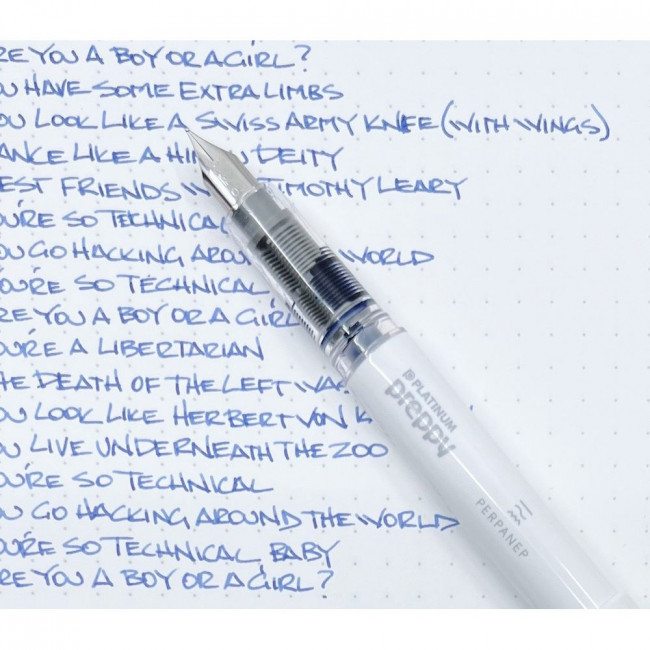 RE YOU A BOY OR A GIRL?
OU HAVE SOME EXTRA LIMBS
OU LOOK LIKE A SWISS ARMY KNIFE (WITH WINGS)
ANCE LIKE A HIN U DEITY
EST FRIENDS W TIMOTHY LEARY
OU'RE SO TECHNICAL
OU GO HACKING AROU WORLD
OU'RE SO TECHNICAL
RE YOU A BOY OR A GIRL
OU'RE A LIBERTARIAN
HE DEATH OF THE LEFT WA
OU LOOK LIKE HERBERT VON K
OU LIVE UNDERNEATH THE ZOO
OU'RE SO TECHNICAL
OU GO HACKING AROUND THE WORLD
OU'RE SO TECHNICAL, BABY
RE YOU A BOY OR A GIRL?
PLATINUM
preppy
PERPANEP